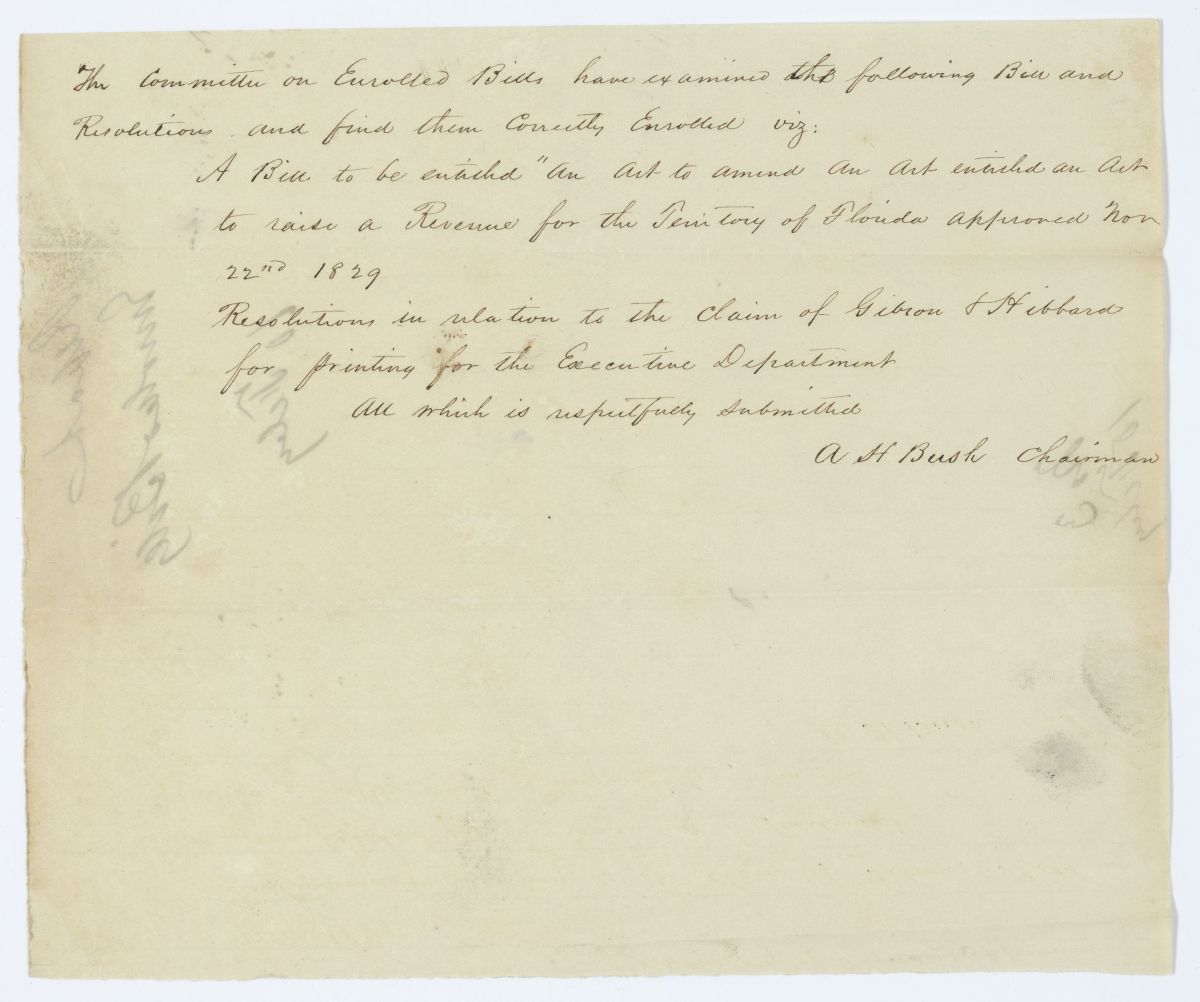 The Committee on Enrolled Bills have examined the following Bill and
Resolutions and find them Correctly Enrolled viz:
A Bill to be entitled "An Act to amend an Act entitled an Act
to raise a Revenue for the Territory of Florida approved Nov
22nd 1829
Resolutions in relation to the Claim of Gibson & Hibbard
for printing for the Executive Department
All which is respectfully submitted
A H Bush Chairman